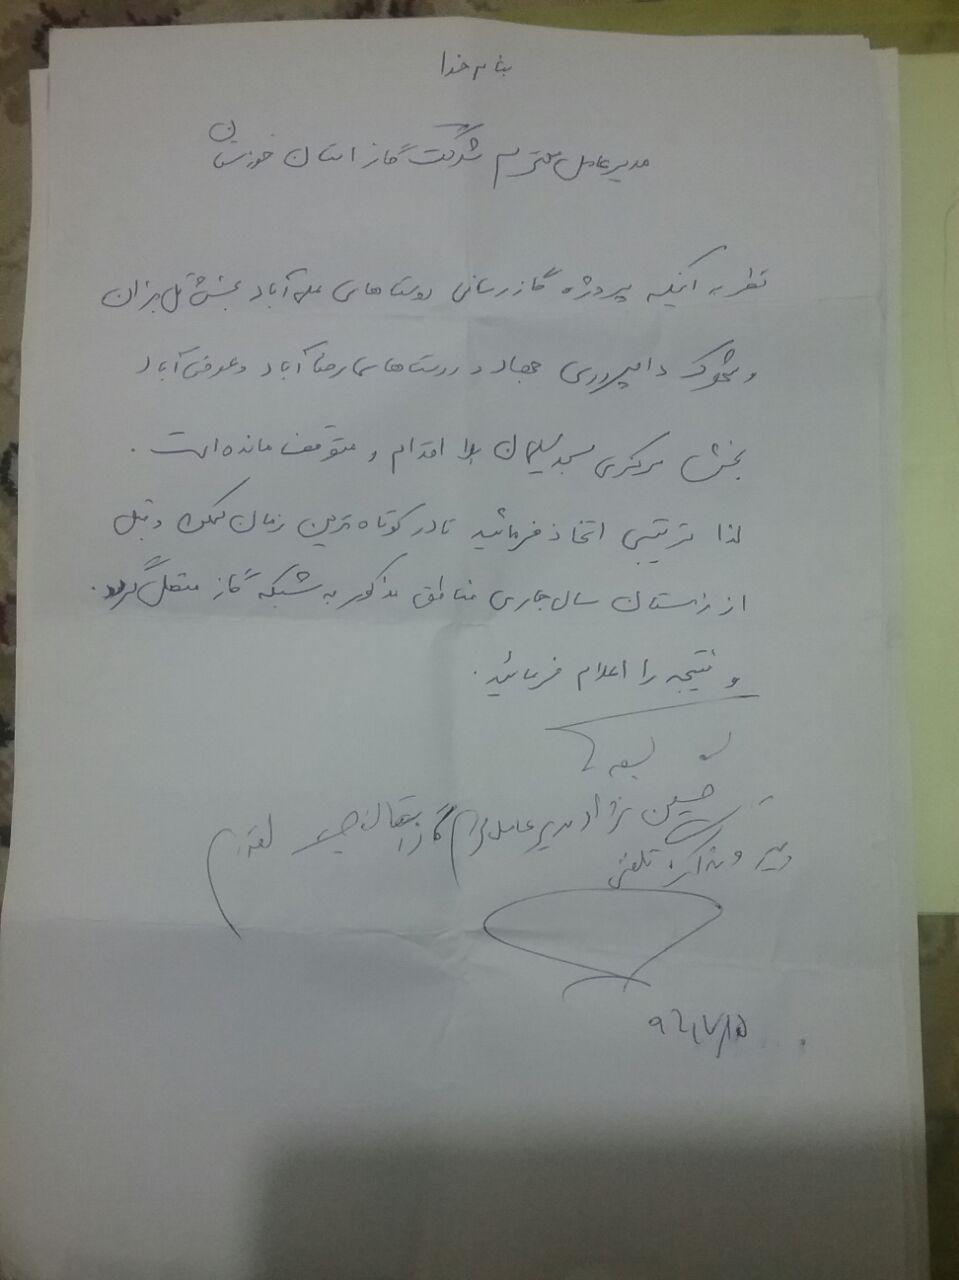 بنام خدا
مدیرعامل محترم شرکت گاز استان خوزستان
نظر به اینکه پروژه گازرسانی روستاهای علی آباد بخش تل بزان
و شهرک دامپروری جهاد و روستاهای رضا آباد و عوض آباد
بخش مرکزی مسجدسلیمان بلا اقدام و متوقف مانده است.
لذا ترتیبی اتخاذ فرمائید تا در کوتاه ترین زمان ممکن و قبل
از زمستان سال جاری مناطق مذکور به شبکه گاز متصل گردد.
و نتیجه را اعلام فرمائید.
حسین نژاد مدیرعامل محترم گاز
تلفنی
۹۶/۷/۱۵